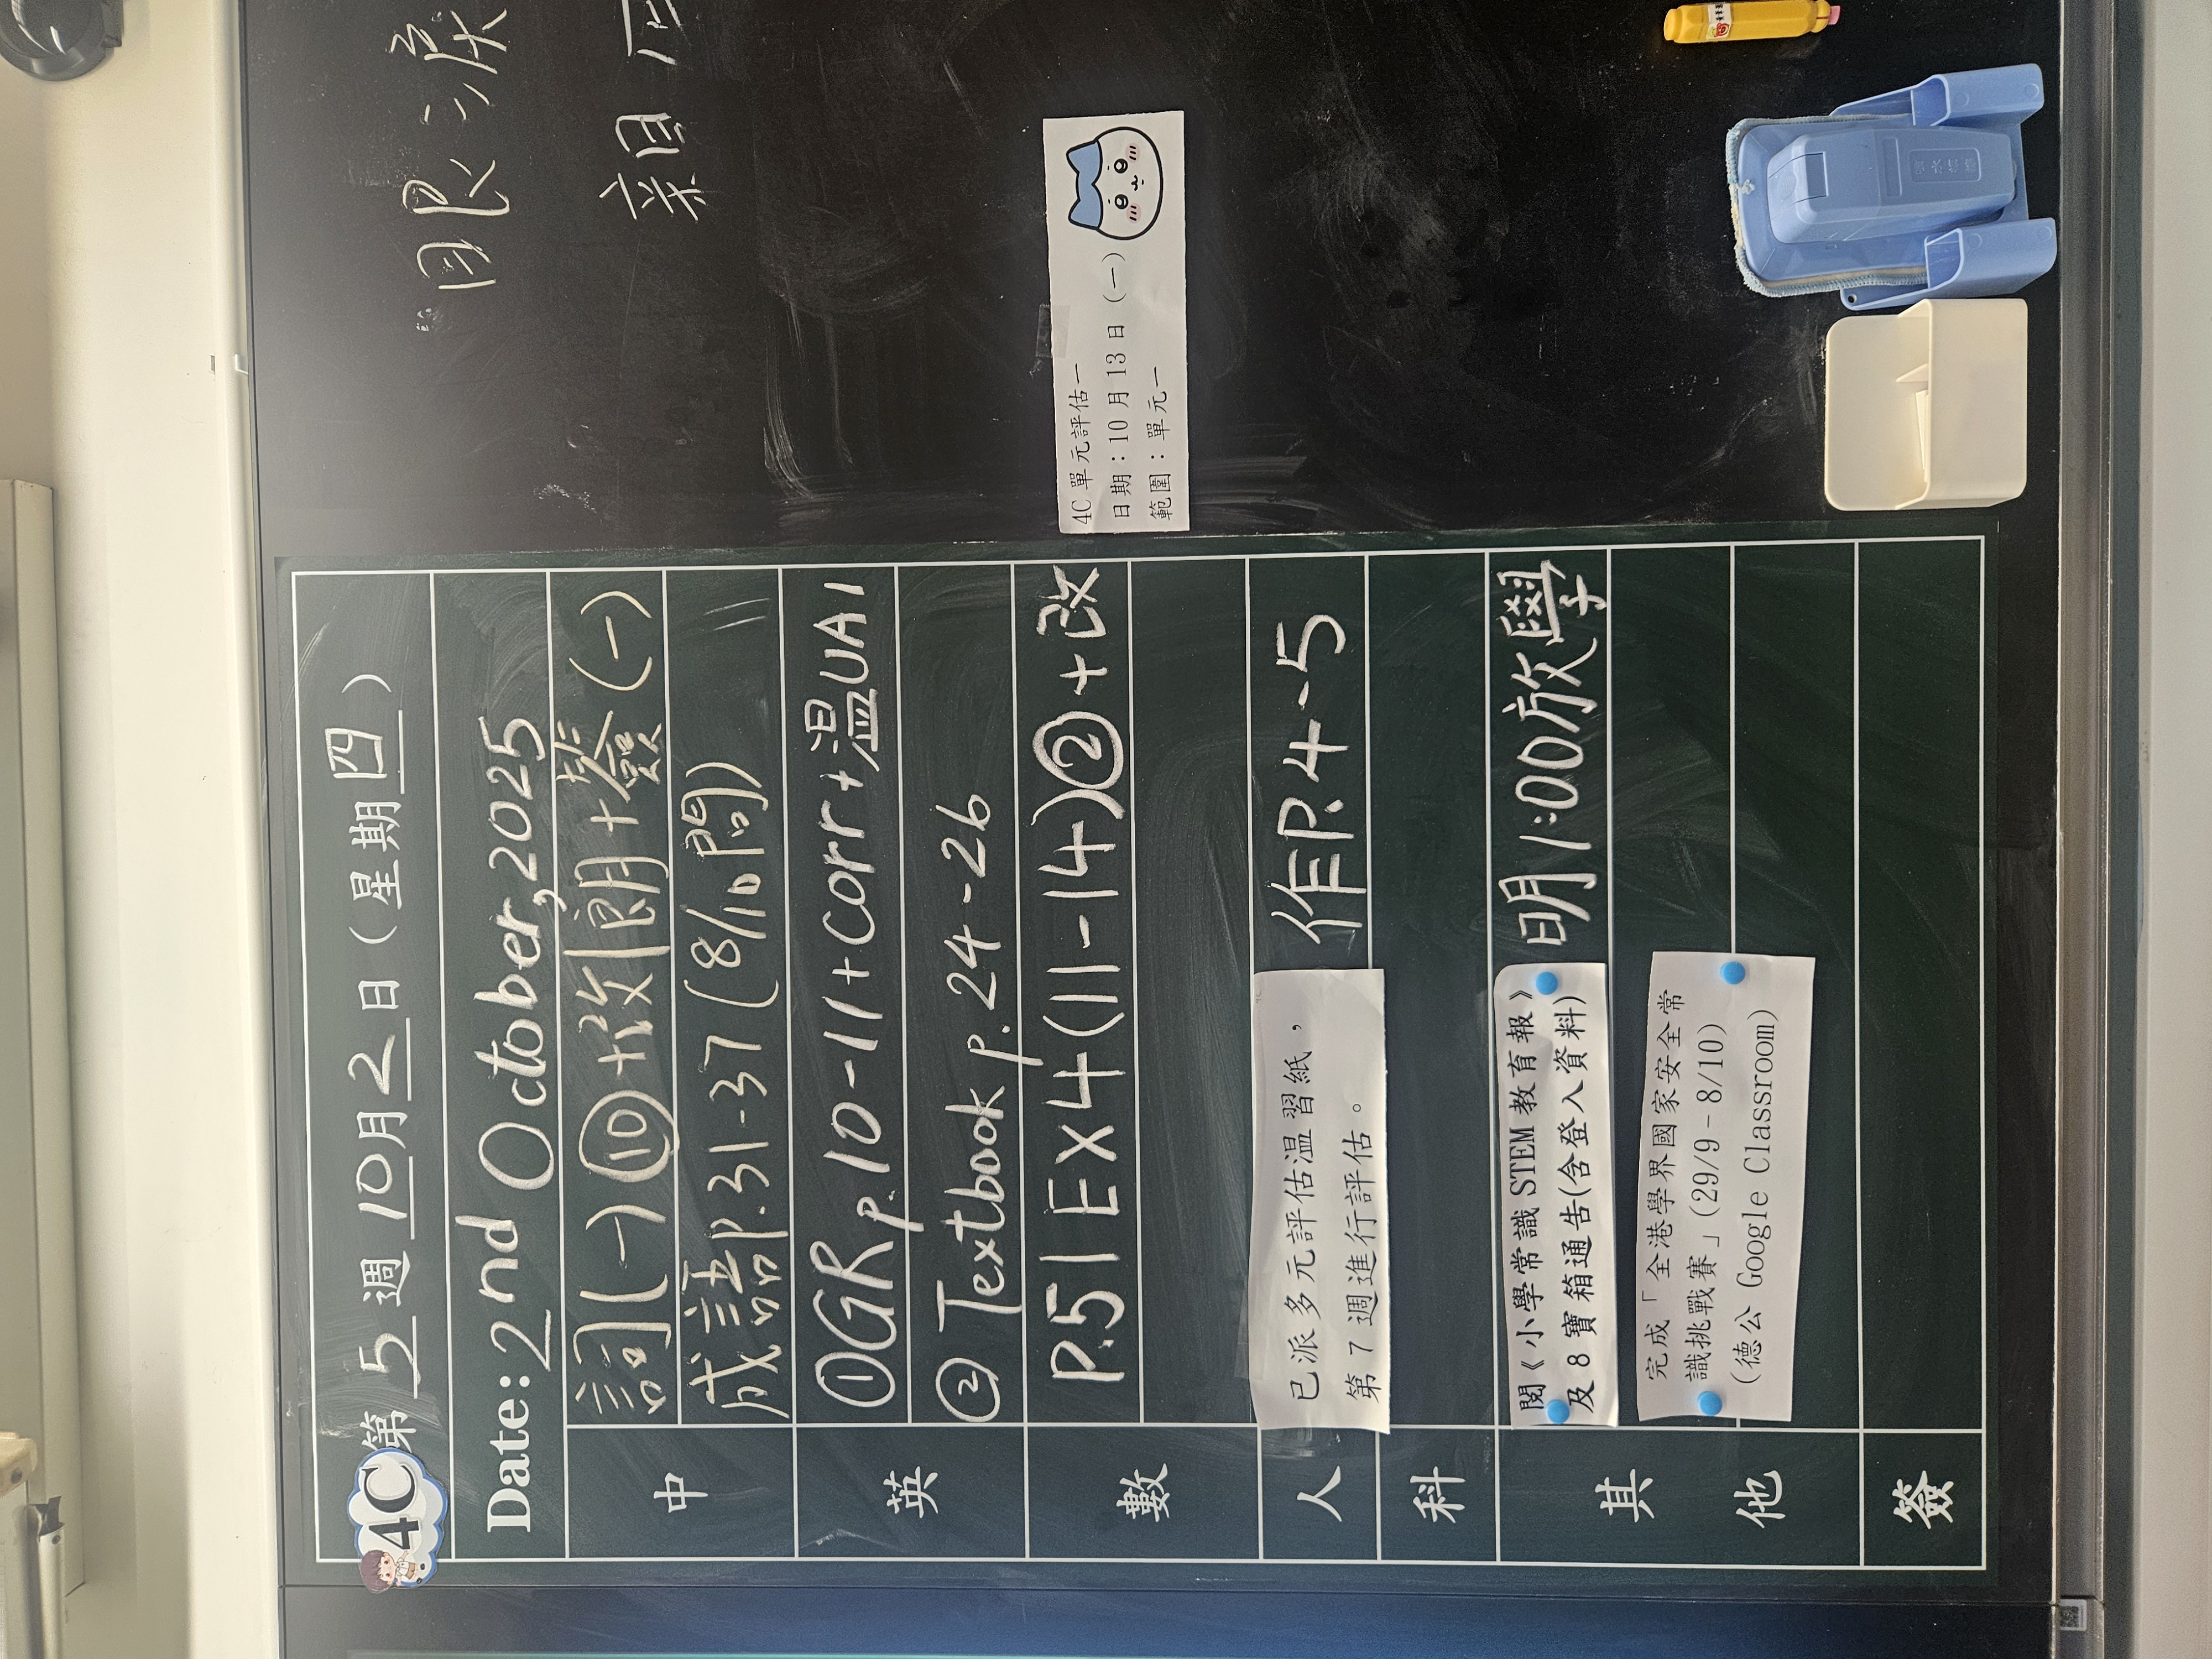 4C
第 5 週 10 月 2 日（星期 四 ）
Date: 2nd October, 2025
中
詞(一)⑩+改朗+簽(一)
成語P.31-37 (8/10問)
英
①OGR p.10-11+corr+温UA1
② Textbook p.24-26
數
P.51 Ex4(11-14)②+改
人
已派多元評估温習紙，
第 7 週進行評估。
作P.4-5
科
其他
閱《小學常識 STEM 教育報》
及 8 寶箱通告(含登入資料)
明1:00放學
完成「全港學界國家安全常
識挑戰賽」(29/9-8/10)
(德公 Google Classroom)
簽
4C 單元評估一
日期：10 月 13 日（一）
範圍：單元一